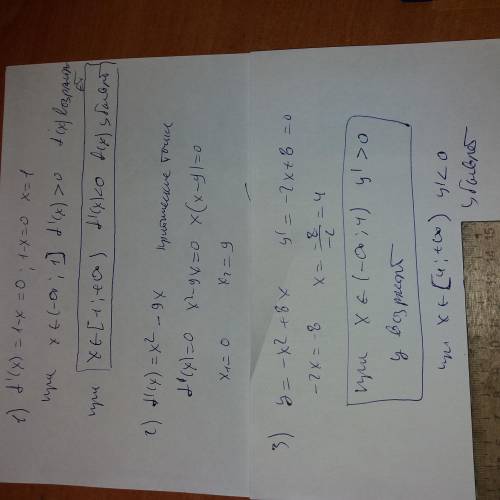 1) f'(x) = 1-x = 0; 1-x=0 x=1
при x ∈ (-∞; 1] f'(x) > 0 f(x) возрастает
при x ∈ [1; +∞) f'(x) < 0 f(x) убывает
2) f'(x) = x² - 9x критические точки
f'(x) = 0 x² - 9x = 0 x(x-9) = 0
x₁ = 0 x₂ = 9
3) y = -x² + 8x y' = -2x + 8 = 0
-2x = -8 x = -8/-2 = 4
при x ∈ (-∞; 4) y' > 0
y возрастает
при x ∈ [4; +∞) y' < 0
убывает